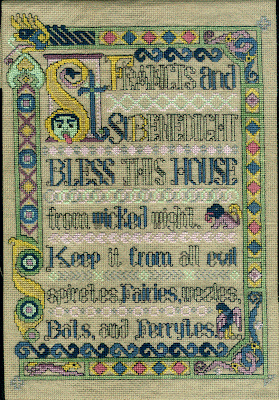 St FRANCIS and
St BENEDIGHT
BLESS THIS HOUSE
from wicked wight.
Keep it from all evil
spiretes, Fairies, wezles,
Bats, and Ferrytes.